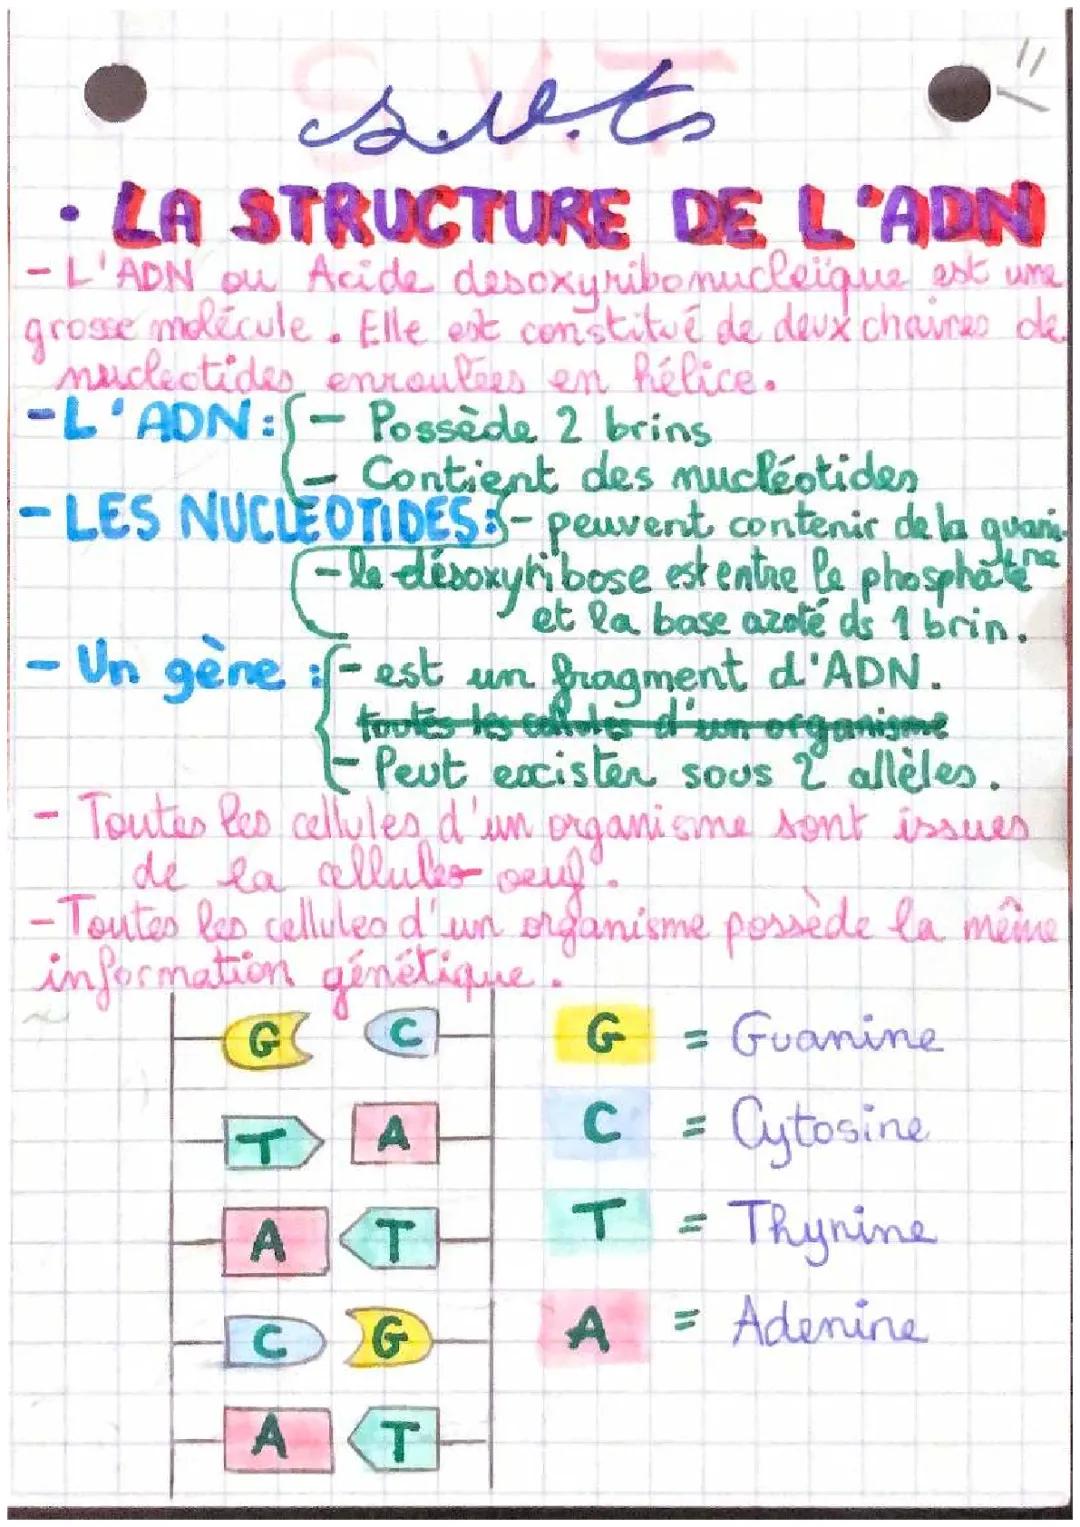 S.V.T
s.v.ts
• LA STRUCTURE DE L'ADN
- L'ADN ou Acide desoxyribonucleïque est une
grosse molécule. Elle est constitué de deux chaines de
nucleotides enroulées en hélice.
- L'ADN : - Possède 2 brins
- Contient des nucléotides
- LES NUCLEOTIDES : - peuvent contenir de la guani-
ne
- le désoxyribose est entre le phosphate
et la base azoté ds 1 brin.
- Un gène : - est un fragment d'ADN.
toutes les cellules d'un organisme
- Peut excister sous 2 allèles.
- Toutes les cellules d'un organisme sont issues
de la cellules-oeuf.
- Toutes les cellules d'un organisme possède la même
information génétique.
G C G = Guanine
T A C = Cytosine
A T T = Thynine
C G A = Adenine
A T